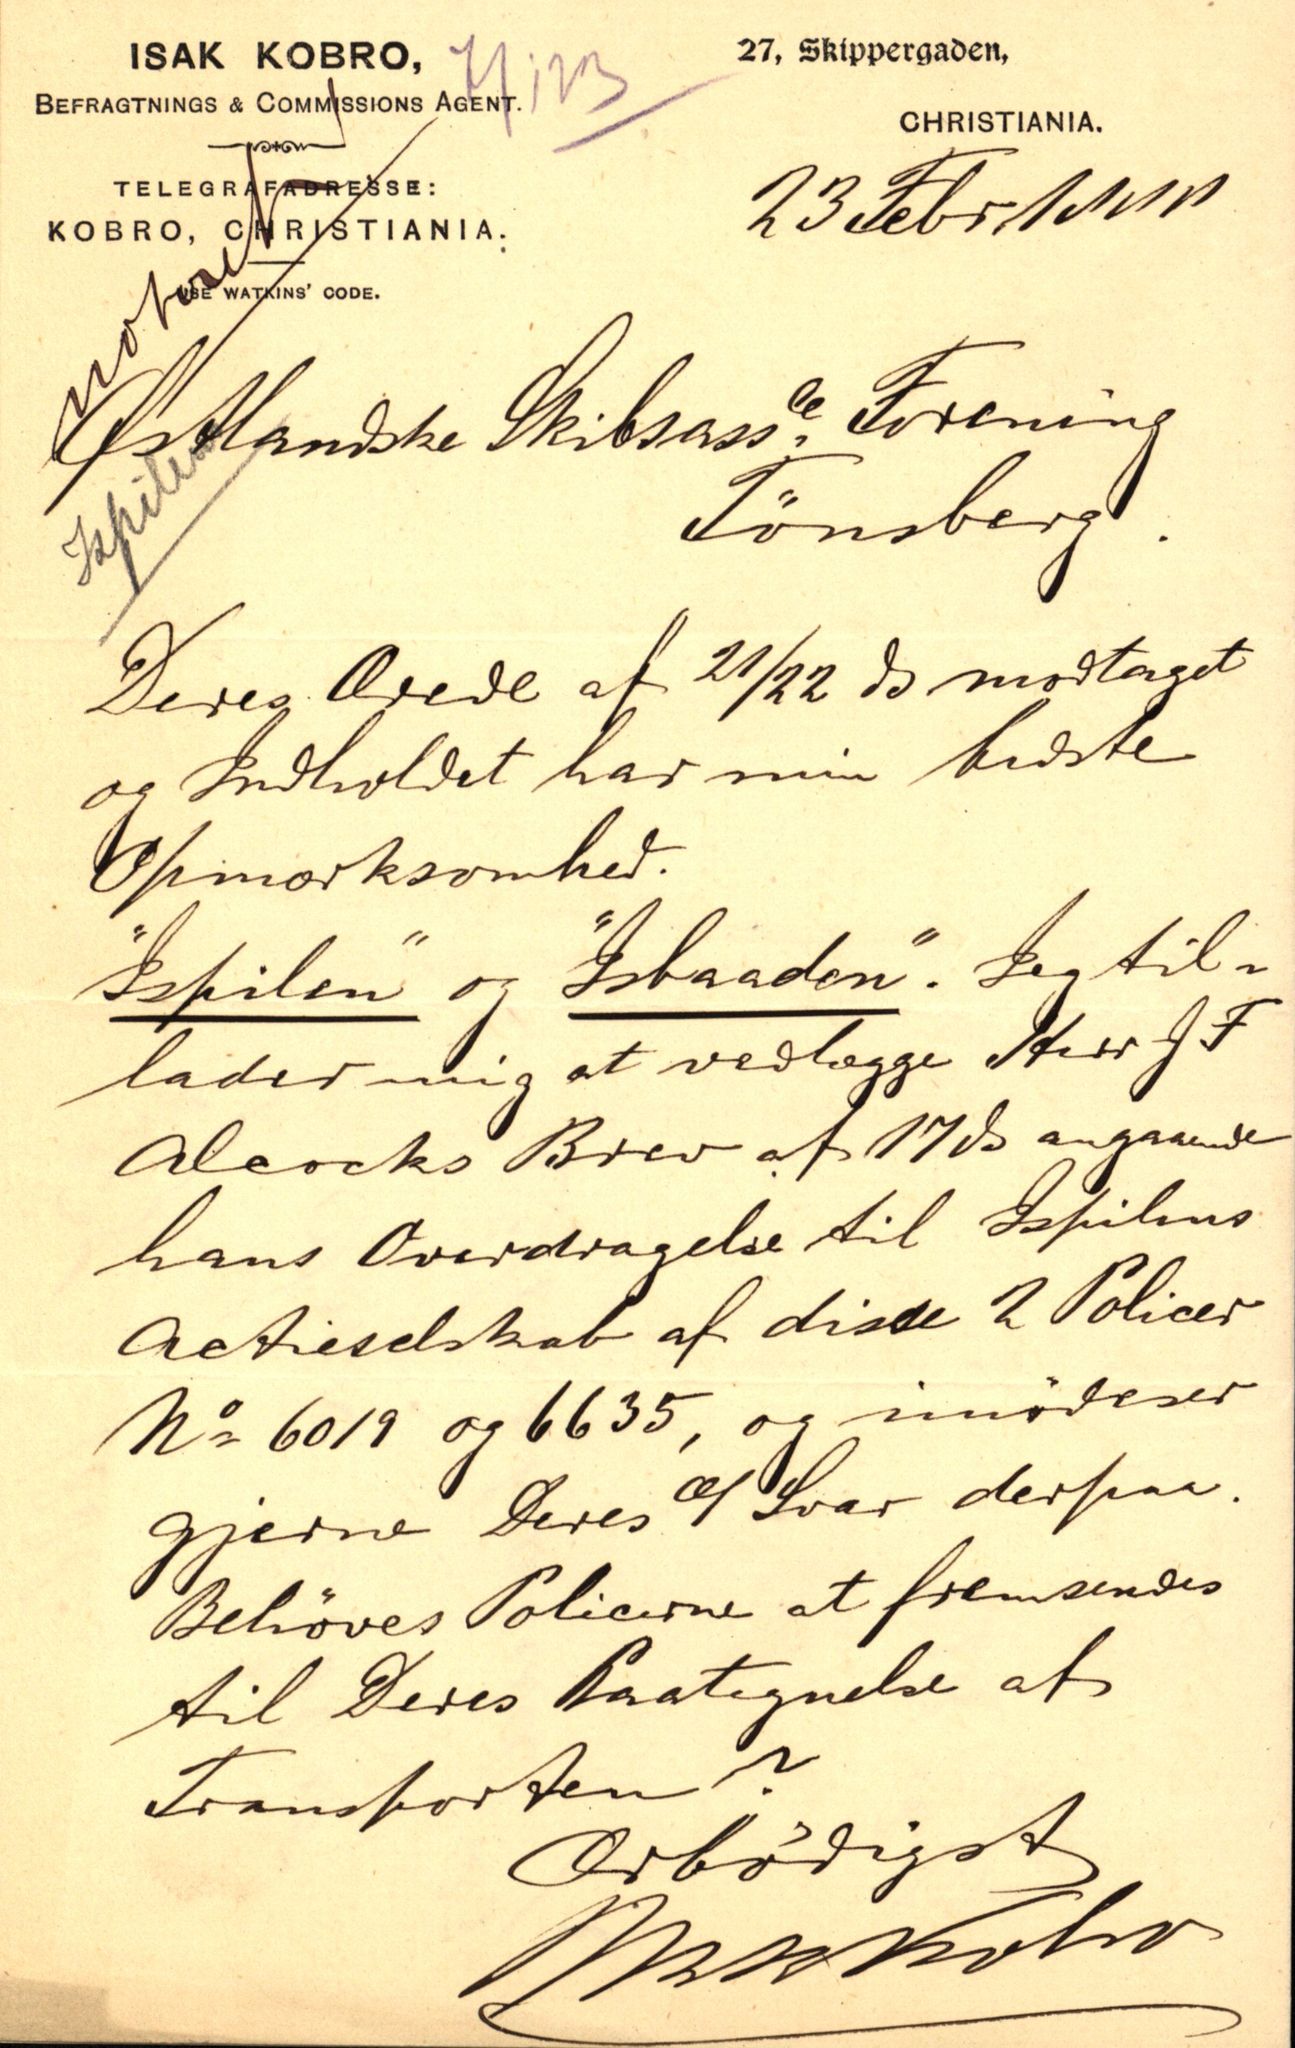 ISAK KOBRO,
BEFRAGTNINGS & COMMISSIONS AGENT.
TELEGRAFADRESSE:
KOBRO, CHRISTIANIA.
USE WATKINS' CODE.
27, Skippergaden,
CHRISTIANIA.
23 Febr.
noteret
Ispilen
Østlandske Skibsassce Forening
Tönsberg.
Deres Ærede af 21/22 ds modtaget
og Indholdet har min bedste
Opmærksomhed.
"Ispilen" og "Isbaaden". Jeg til-
lader mig at vedlægge Herr J F
Alcocks Brev af 17 ds angaaende
hans Overdragelse til Ispilens
Actieselskab af disse 2 Policer
No 6019 og 6635, og imödeser
gjerne Deres Æ/ Svar derpaa.
Behöves Policerne at fremsendes
til Deres Paategnelse af
Transporten?
Ærbödigst
Isak Kobro